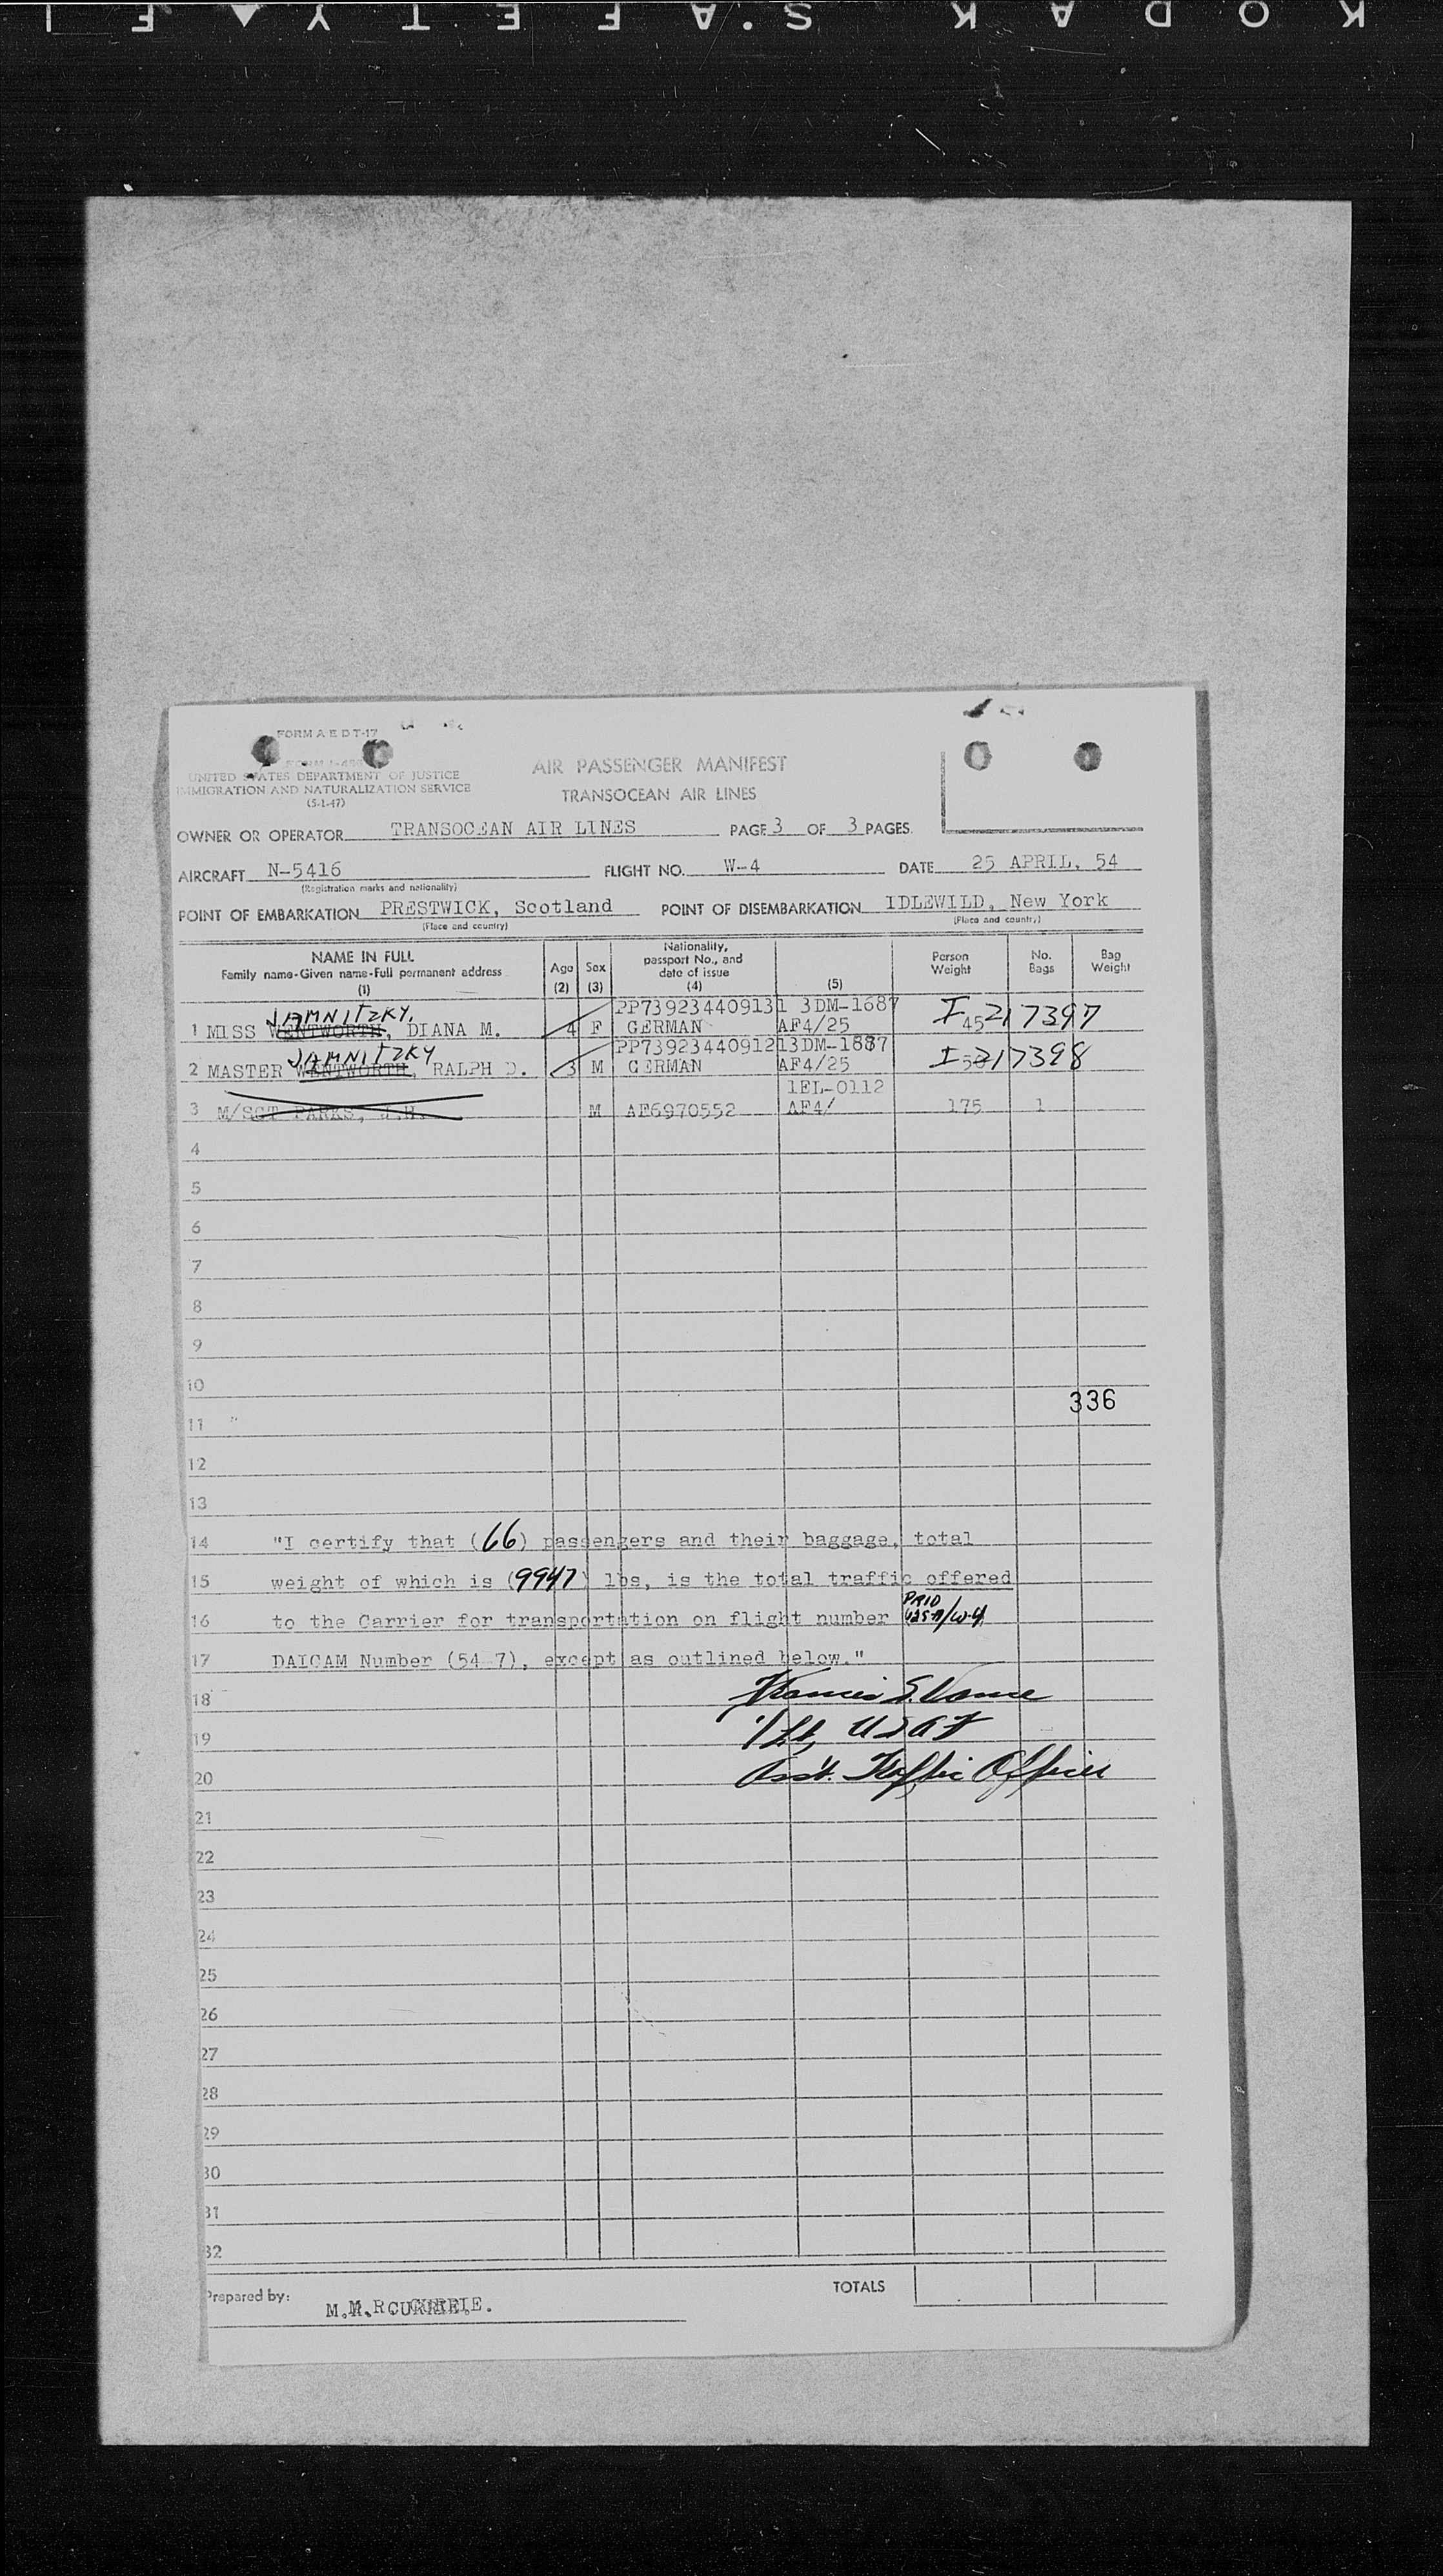 KODAK SAFETY FI
FORM A E D T-17
UNITED STATES DEPARTMENT OF JUSTICE
IMMIGRATION AND NATURALIZATION SERVICE
(5-1-47)
AIR PASSENGER MANIFEST
TRANSOCEAN AIR LINES
OWNER OR OPERATOR TRANSOCEAN AIR LINES PAGE 3 OF 3 PAGES
AIRCRAFT N-5416 FLIGHT NO. W-4 DATE 25 APRIL, 54
(Registration marks and nationality)
POINT OF EMBARKATION PRESTWICK, Scotland POINT OF DISEMBARKATION IDLEWILD, New York
(Place and country) (Place and country)
NAME IN FULL
Family name-Given name-Full permanent address
(1)
Age
(2)
Sex
(3)
Nationality,
passport No., and
date of issue
(4)
(5)
Person
Weight
No.
Bags
Bag
Weight
JAMNITZKY. PP739234409131 3DM-1687
1 MISS WENTWORTH, DIANA M. 4 F GERMAN AF4/25 45 I-217397
JAMNITZKY PP7392344091213DM-1887
2 MASTER WENTWORTH, RALPH D. 3 M GERMAN AF4/25 I-217398
1EL-0112
3 M/SGT PARKS, J.H. M AF6970552 AF4/ 175 1
4
5
6
7
8
9
10
336
11
12
13
14 "I certify that (66) passengers and their baggage, total
15 weight of which is (9947) lbs, is the total traffic offered
16 to the Carrier for transportation on flight number PRID /W-4
17 DAICAM Number (54-7), except as outlined below."
18 Francis S. Vance
19 1/Lt, USAF
20 Ass't. Traffic Officer
21
22
23
24
25
26
27
28
29
30
31
32
Prepared by: M.R. CURRIE. TOTALS